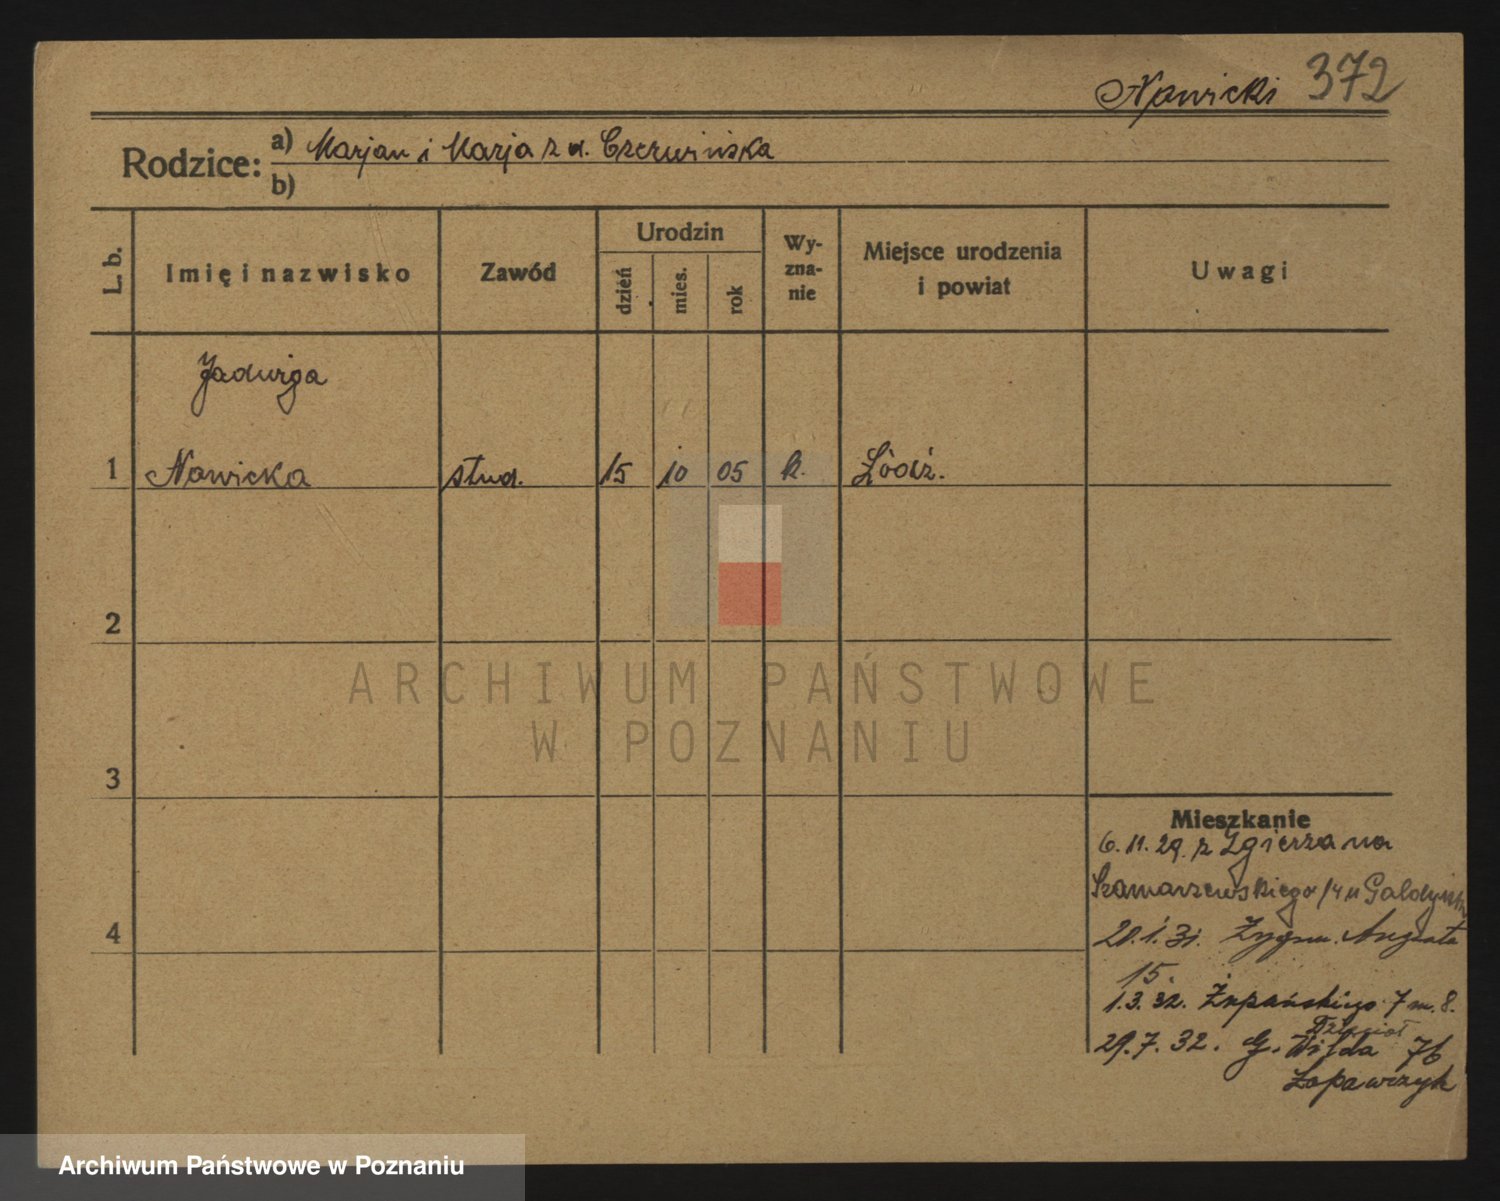 Nowicki 372
Rodzice: a) Marjan i Marja z d. Czerwińska
b)
L. b.
Imię i nazwisko
Zawód
Urodzin
dzień
mies.
rok
Wy-
zna-
nie
Miejsce urodzenia
i powiat
Uwagi
Jadwiga
1 Nowicka stud. 15 10 05 k. Łódź.
2
3
4
Mieszkanie
6.11.29. z Zgierza na
Szamarzewskiego 14 u
20.1.31. Zygm. Augusta
15.
1.3.32. Żupańskiego 7 m. 8.
29.7.32. G. Wilda 76
ARCHIWUM PAŃSTWOWE
W POZNANIU
Archiwum Państwowe w Poznaniu